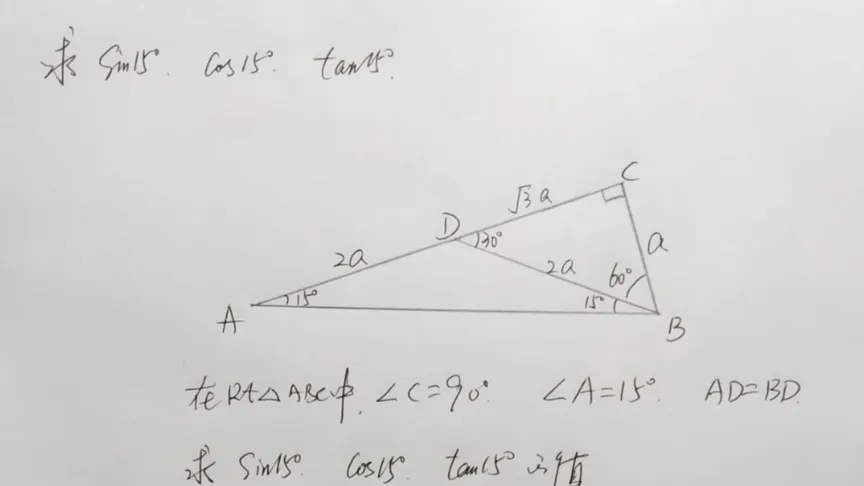 求 Sin15°. Cos15°. tan15°.
C
√3 a
D
30°
2a
2a
a
60°
15°
15°
A
B
在Rt△ABC中. ∠C=90° ∠A=15° AD=BD.
求 Sin15° Cos15° tan15°的值